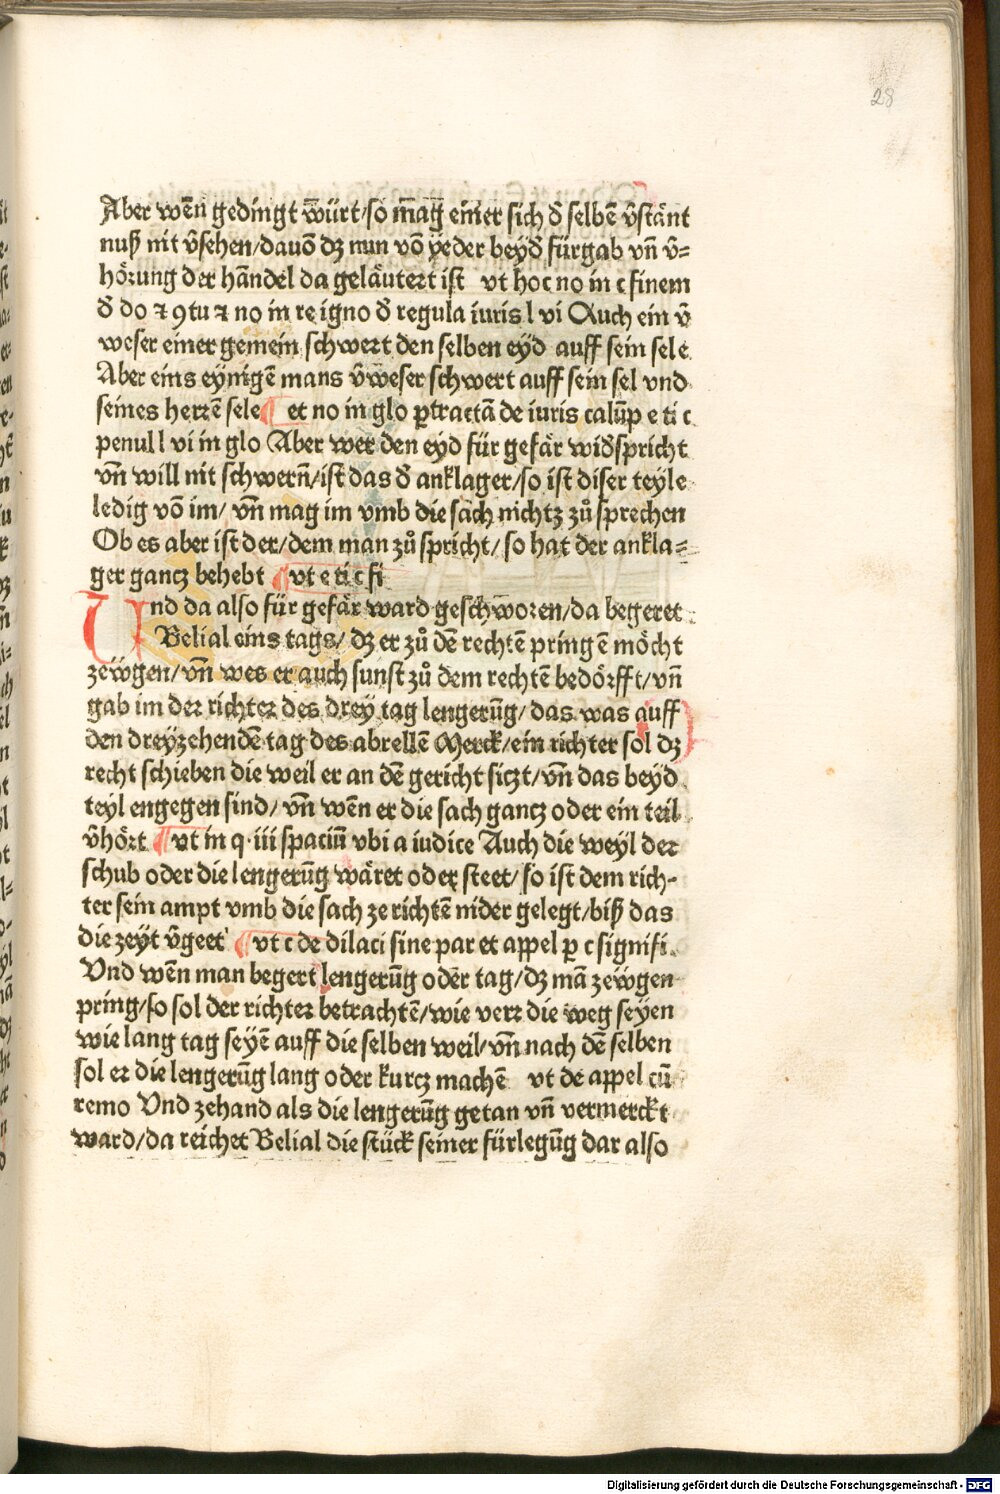 28
Aber wen̄ gedingt w̄urt/so m̄ag einer sich d̄ selbē v̄stänt
nuß nit v̄sehen/dauō dz nun vō yeder beyd̄ fürgab vn̄ v̄=
hörung der hān̄del da geläutert ist vt hoc no in c finem
d̄ do ⁊ ꝯtu ⁊ no in re igno d̄ regula iuris l vi Auch ein v̄
weser einer gemein schwert den selben eyd auff sein sele
Aber eins eynigē mans v̄weser schwert auff sein sel vnd
seines herrē sele et no in glo ꝑtractā de iuris calūp e ti c
penul l vi in glo Aber wer den eyd für gefär wid̄spricht
vn̄ will nit schwern̄/ist das d̄ anklager/so ist diser teyle
ledig vō im/ vn̄ mag im vmb die sach nichtz zů sprechen
Ob es aber ist der/dem man zů spricht/ so hat der ankla=
ger gancz behebt vt e ti c fi
Und da also für gefär ward geschworen/da begeret
Belial eins tags/ dz er zů dē rechtē pringē möcht
zeẅgen/vn̄ wes er auch sunst zů dem rechtē bedörfft/vn̄
gab im der richter des drey tag lengerūg/das was auff
den dreyzehendē tag des abrellē Merck/ein richter sol dz
recht schieben die weil er an dē gericht siczt/vn̄ das beyd
teyl engegen sind/ vn̄ wēn er die sach gancz oder ein teil
v̄hört vt in q·iii spaciū vbi a iudice Auch die weyl der
schub oder die lengerūg wäret oder steet/so ist dem rich-
ter sein ampt vmb die sach ze richtē nider gelegt/biß das
die zeyt v̄geet vt c de dilaci sine par et appel ꝑ c signifi
Vnd wēn man begert lengerūg oder tag/dz mā zeẅgen
pring/so sol der richter betrachtē/wie verr die weg seyen
wie lang tag seyē auff die selben weil/vn̄ nach dē selben
sol er die lengerūg lang oder kurcz machē vt de appel cū
remo Vnd zehand als die lengerūg getan vn̄ vermerckt
ward/da reichet Belial die stück seiner fürlegūg dar also
Digitalisierung gefördert durch die Deutsche Forschungsgemeinschaft - DFG